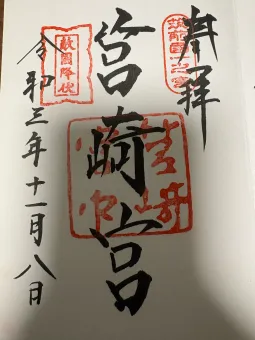 奉拝
筑前國一之宮
筥崎宮
敵國降伏
令和三年十一月八日